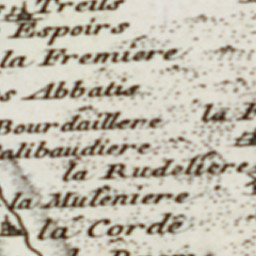 Treils
Espoirs
la Fremiere
s Abbatis
Bourdaillere
la
alibaudiere
la Rudeliere
la Museniere
la Corde